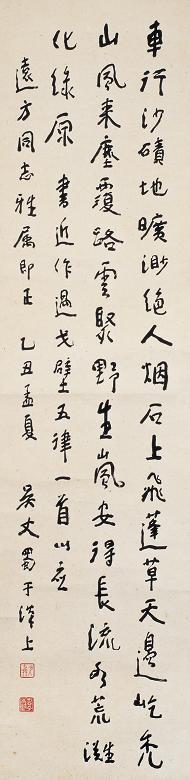 車行沙磧地曠渺絕人烟石上飛蓬草天邊屹禿
山風來塵覆路雲聚野生嵐安得長流水荒灘
化綠原 書近作過戈壁五律一首以應
遠方同志雅屬即正 乙丑孟夏 吳丈蜀于漢上